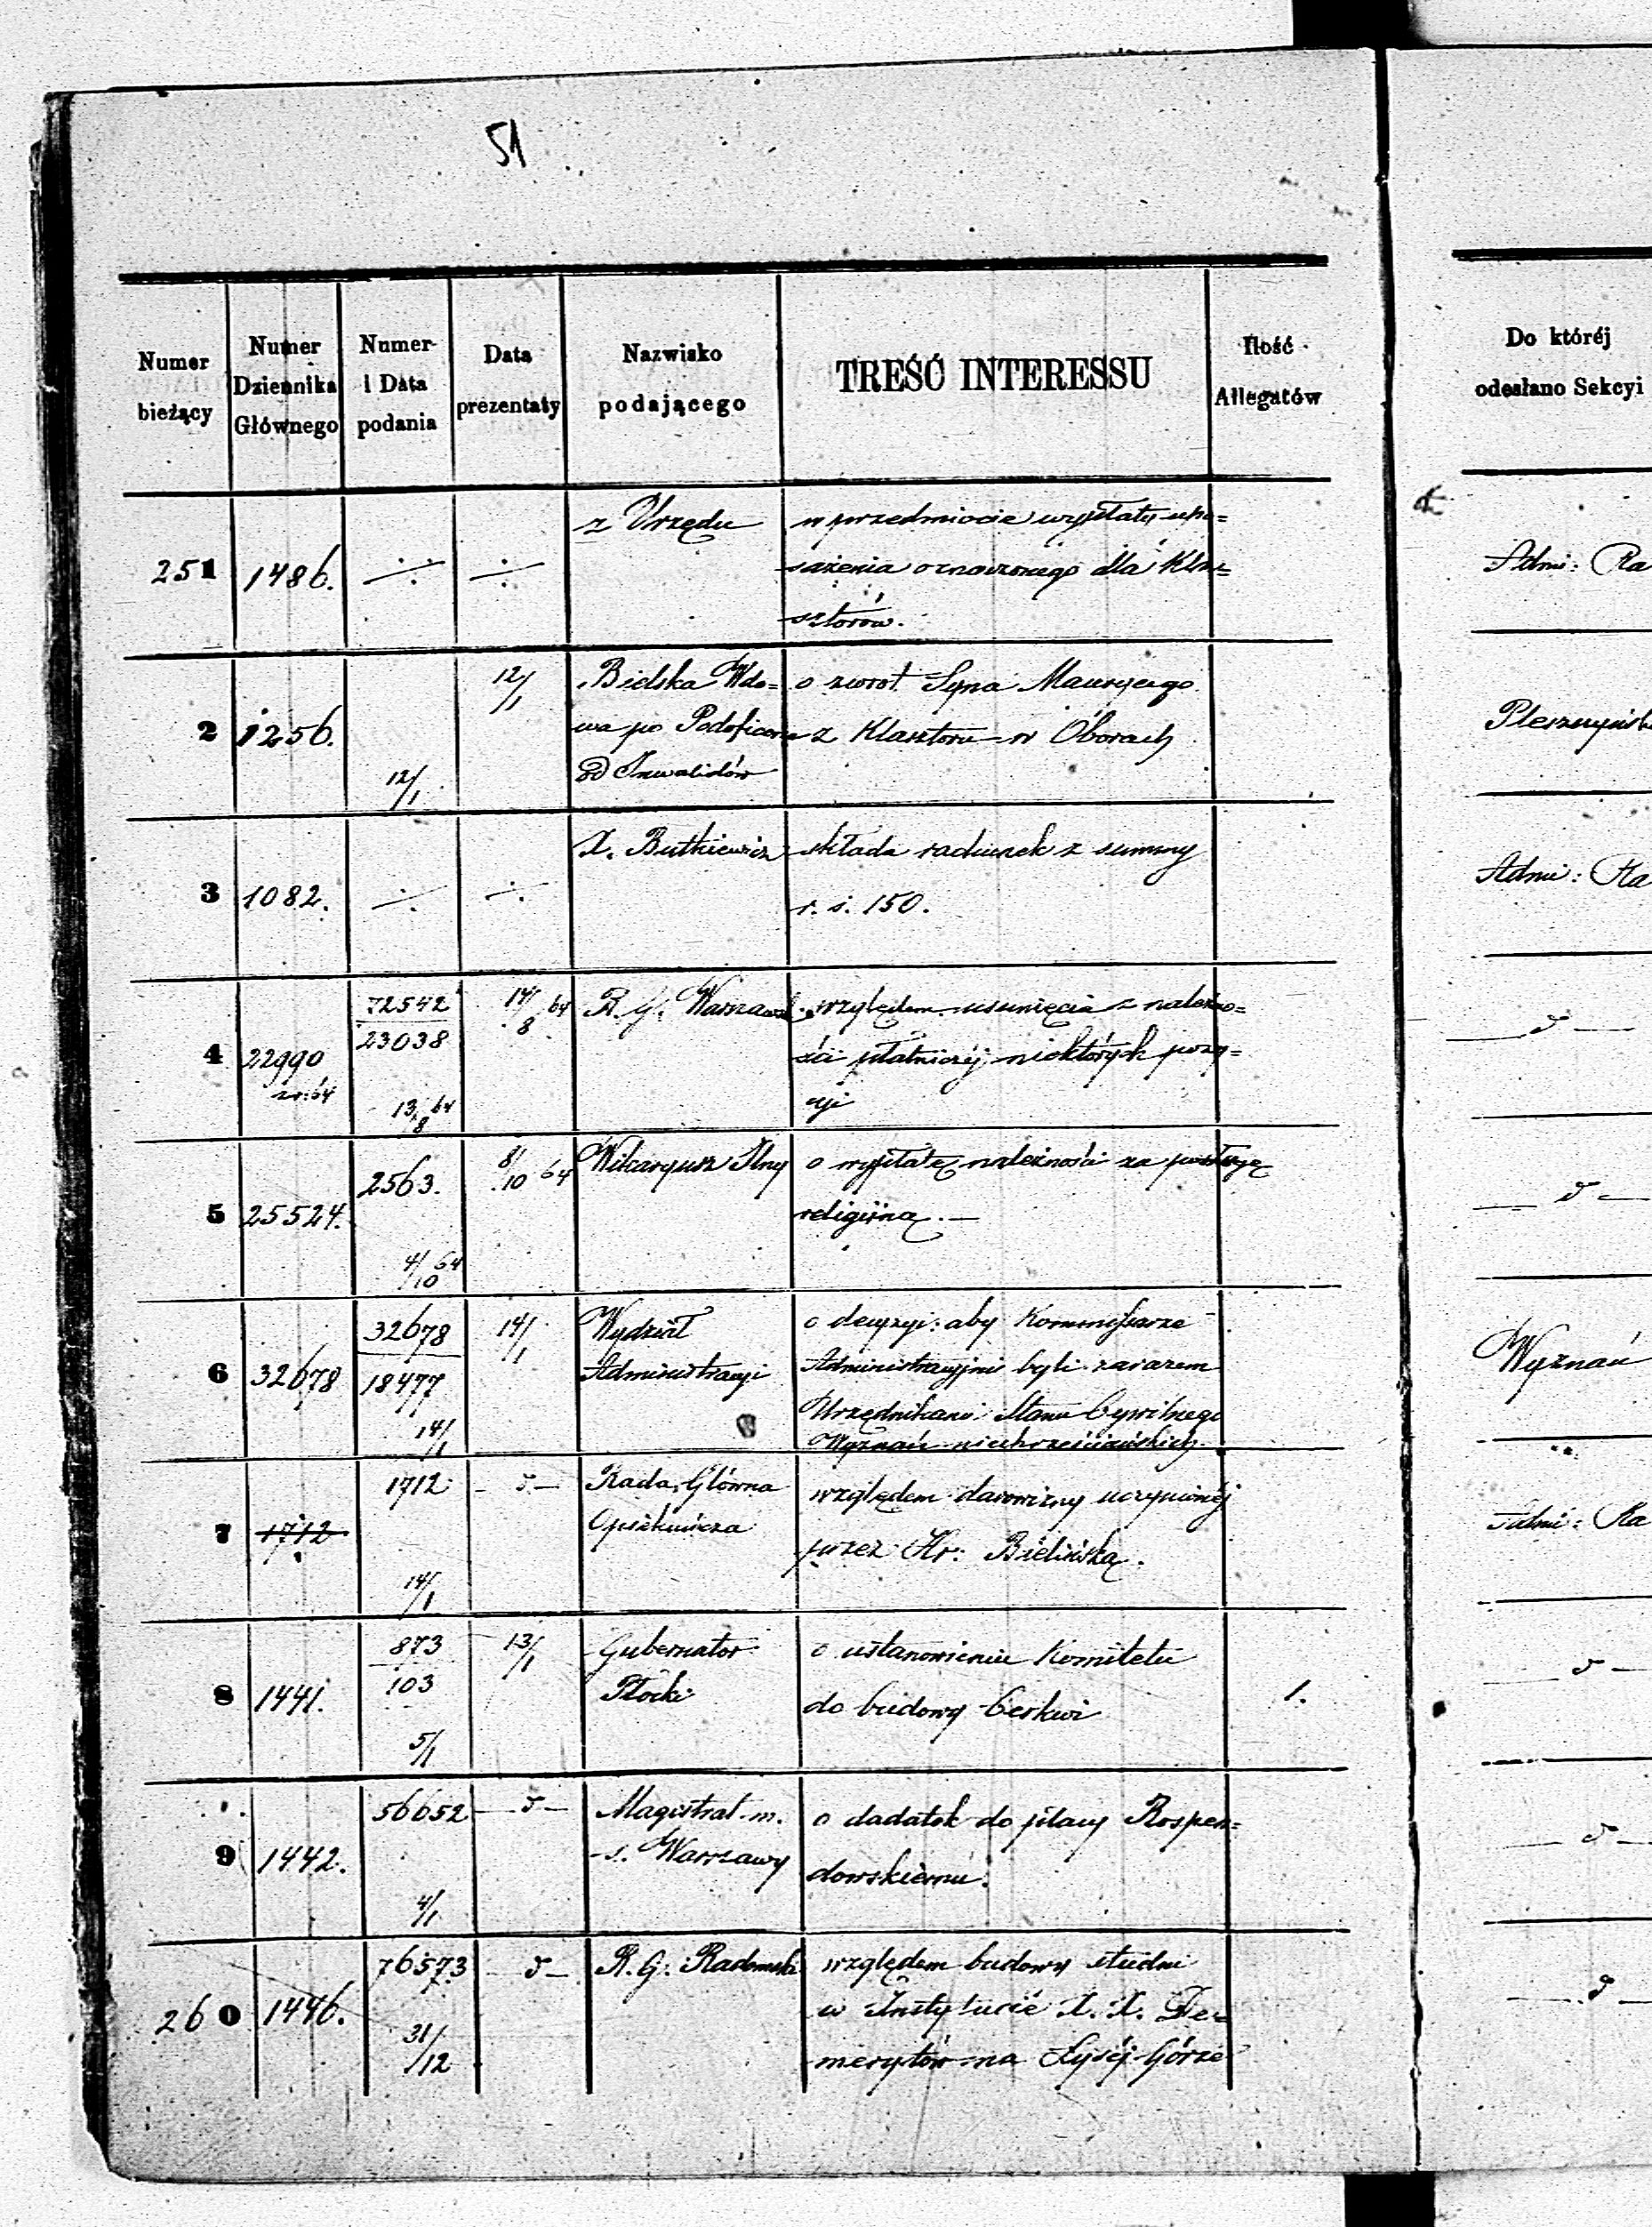 51
Numer bieżący
Numer Dziennika Głównego
Numer i Data podania
Data prezentaty
Nazwisko podającego
TREŚĆ INTERESSU
Ilość Allegatów
Do któréj odesłano Sekcyi
251 1486. z Urzędu w przedmiocie wypłaty upo=
sażenia oznaczonego dla Kla=
sztorów.
Admi: Ra
2 1256. 12/1 12/1 Bielska Wdo= o zwrot Syna Maurycego
wa po Podoficerze z Klasztoru w Oborach
od Inwalidów
3 1082. X. Butkiewicz składa rachunek z summy
r. s. 150.
Admi: Ra
4 22990 z r: 64 72542 23038 13/8 64 14/8 64 R. G. Warszawsk. względem usunięcia z należno=
ści płatniczéj niektórych pozy=
cji
d
5 25524. 2563. 4/10 64 8/10 64 Wikaryusz Iłny o wypłatę należności za posługę
religijną. —
d
6 32678 32678 18477 14/1 14/1 Wydział o decyzyi: aby Kommissarze
Administracyi Administracyjni byli zarazem
Urzędnikami Stanu Cywilnego
Wyznań niechrześciańskich.
Wyznań
7 1712 1712 14/1 d Rada Główna względem darowizny uczynionéj
Opiekuńcza przez Hr: Bielińską.
Admi: Ra
8 1441. 873 103 5/1 13/1 Gubernator o ustanowieniu Komitetu
Płocki do budowy Cerkwi 1.
d
9 1442. 56652 4/1 d Magistrat m. o dadatek do płacy Rospen=
s. Warszawy dowskiemu.
d
260 1446. 76573 31/12 d R. G. Radomski względem budowy studni
w Instytucie X. X. De=
merytów na Łyséj Górze
d